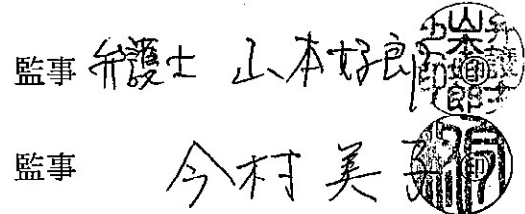 監事 弁護士 山本好郎
監事 今村美